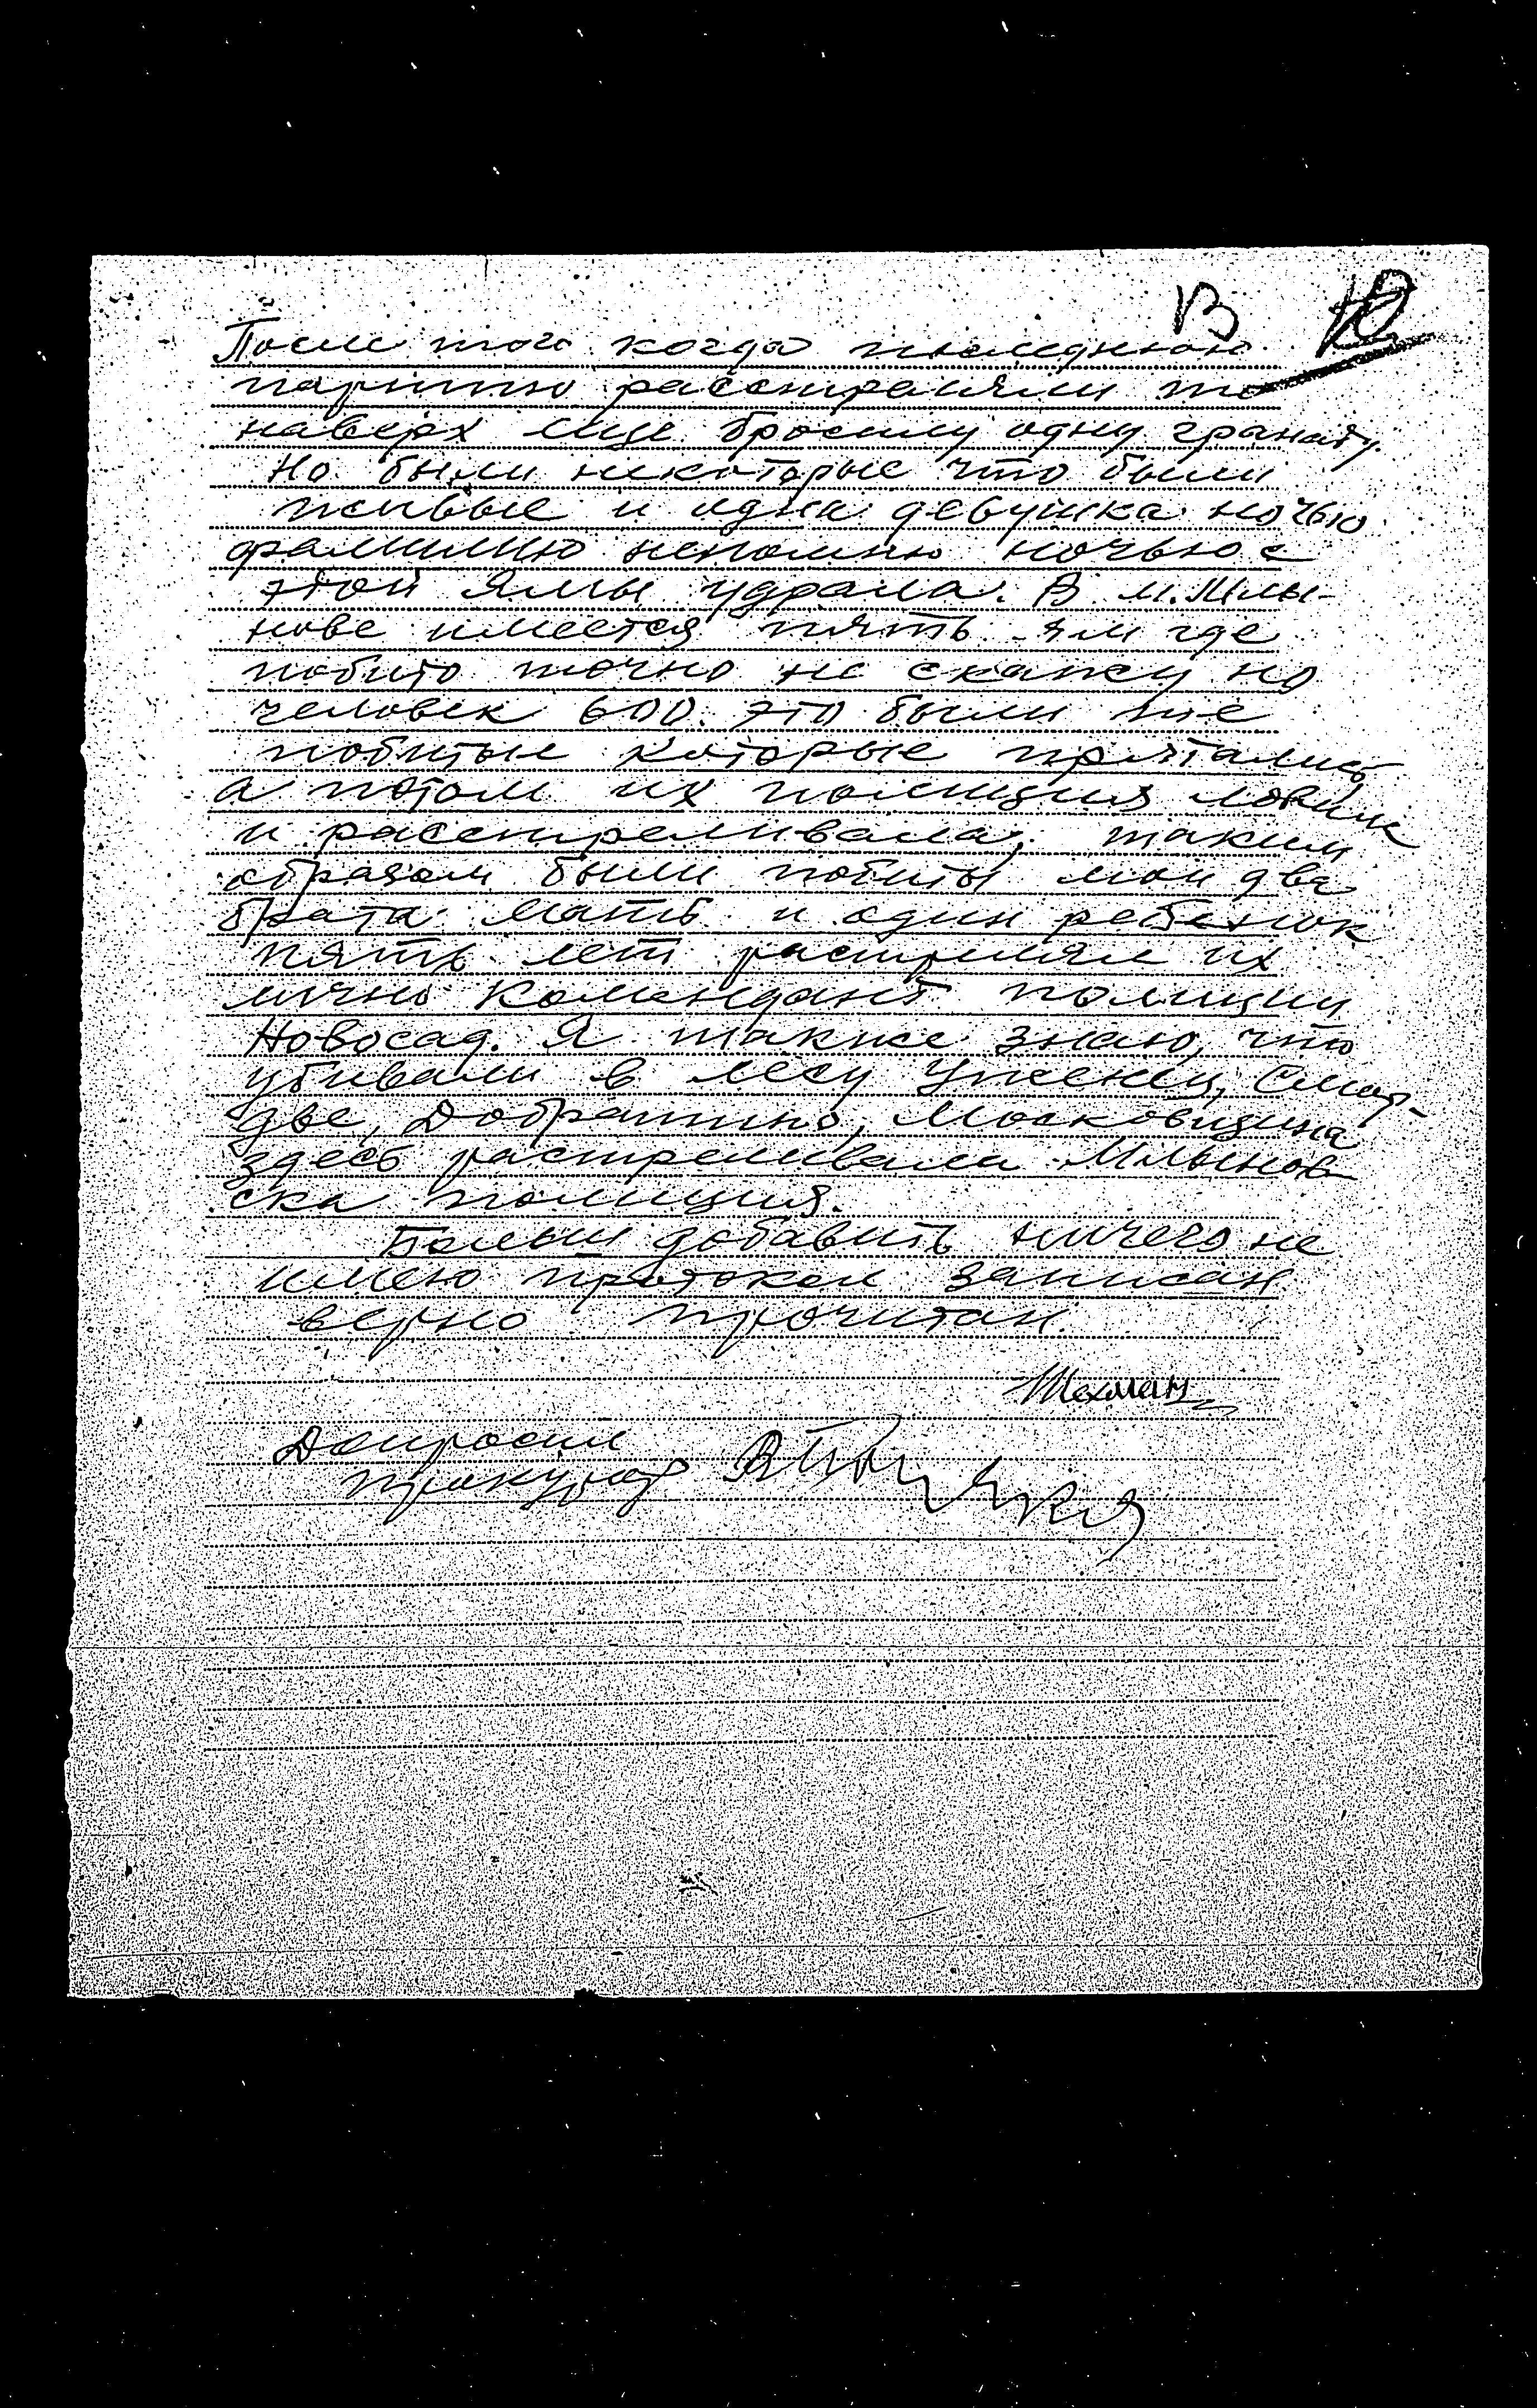 13
После того когда последнюю
партию расстраляли то
наверх еще бросили одну гранату.
Но были некоторые что были
живые и одна девушка ночью
фамилию непомню ночью с
этой ямы удрала. В м. Млы-
нове имеется пять ям где
побито точно не скажу но
человек 600. это были те
побитые которые прятались
а потом их полиция ловила
и расстреливала, таким
образом были побиты мои два
брата мать и один ребенок
пять лет растрелял их
лично комендант полиции
Новосад. Я также знаю, что
убивали в лесу Ужинец, Смор-
две, Добратино, Московщина
здесь растреливала Млынов-
ска полиция.
Больш добавить ничего не
имею протокол записан
верно прочитан.
Допросил
прокурор